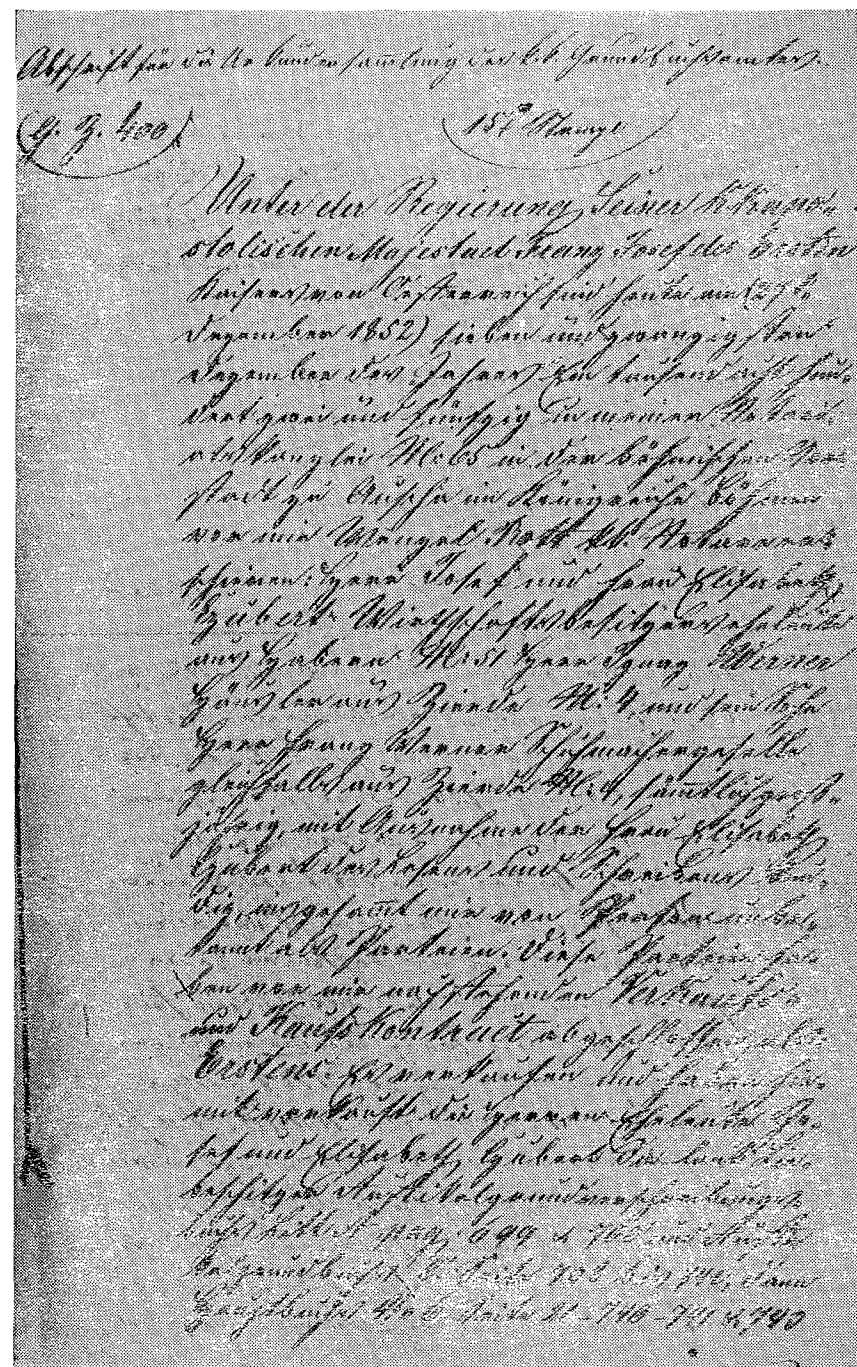 Abschrift für die Urkundensammlung des k.k. Grundbuchsamtes.
G. Z. 400 15 Stempel
Unter der Regierung Seiner k. k. apo-
stolischen Majestaet Franz Josef des Ersten
Kaisers von Oesterreich sind heute am (27t.
Dezember 1852) sieben und zwanzigsten
Dezember des Jahres Ein tausend acht hun-
dert zwei und fünfzig in meiner Notari-
atskanzlei N: 65 in der böhmischen Vor-
stadt zu Auscha im Königreiche Böhmen
vor mir Wenzel k.k. Notar er-
schienen: Herr Josef und Frau Elisabeth
Hubert Wirthschaftsbesitzerseheleute
aus Habern N: 51 Herr Ignaz Werner
Häusler aus Zierde N: 4 und sein Sohn
Herr Franz Werner Schuhmachergeselle
gleichfalls aus Zierde N: 4, sämmtlich groß-
jährig, mit Ausnahme der Frau Elisabeth
Hubert des Lesens und Schreibens kun-
dig, insgesamt mir von Person unbe-
kannt als Parteien. Diese Parteien ha-
ben vor mir nachstehenden Verkaufs-
und Kaufskontract abgeschlossen, als:
Erstens. Es verkaufen und haben hie-
mit verkauft die Herren Eheleute Jo-
sef und Elisabeth Hubert die laut
besitzer
pag. 699
Grundbuchs Seite dann
Hauptbuchs Seite 21 - 740 - 741 & 743